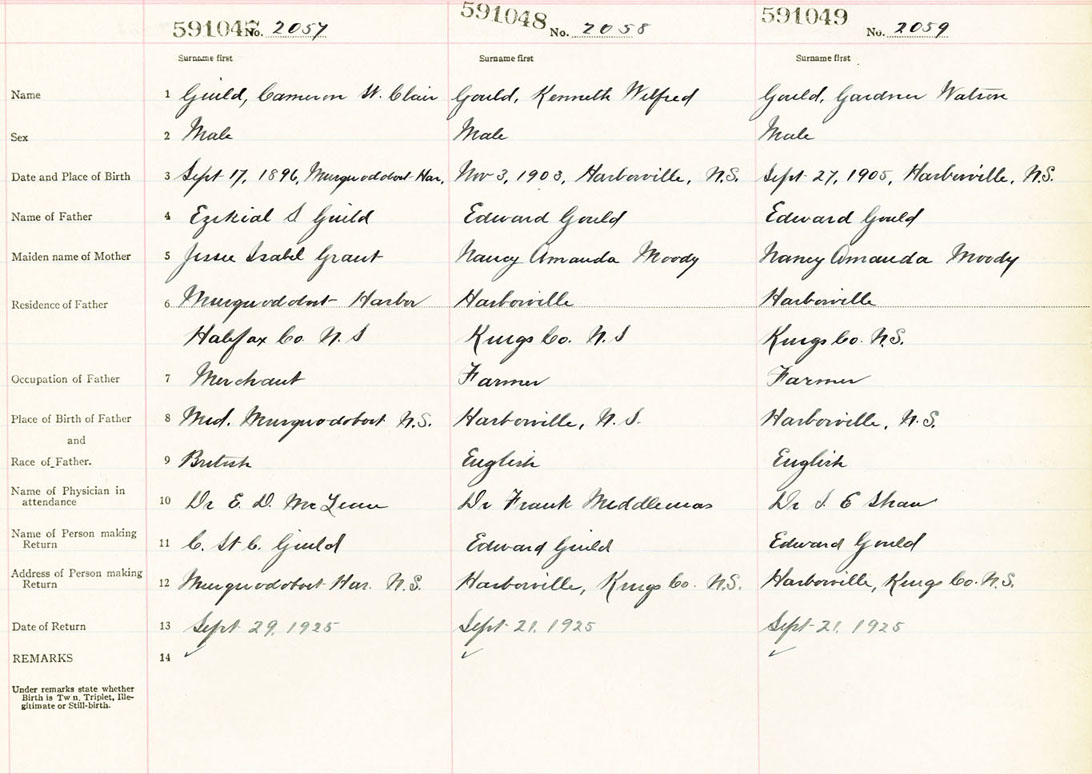 591047 No. 2057 591048 No. 2058 591049 No. 2059
Surname first Surname first Surname first
Name 1 Guild, Cameron St. Clair Gould, Kenneth Wilfred Gould, Gardner Watson
Sex 2 Male Male Male
Date and Place of Birth 3 Sept 17, 1896, Musquodoboit Har. Nov 3, 1903, Harborville, N.S. Sept. 27, 1905, Harborville, N.S.
Name of Father 4 Ezekial S Guild Edward Gould Edward Gould
Maiden name of Mother 5 Jessie Isabel Grant Nancy Amanda Moody Nancy Amanda Moody
Residence of Father 6 Musquodoboit Harbor Harborville Harborville
Halifax Co. N. S Kings Co. N. S Kings Co. N.S.
Occupation of Father 7 Merchant Farmer Farmer
Place of Birth of Father 8 Mid. Musquodoboit N.S. Harborville, N. S. Harborville, N.S.
and
Race of Father. 9 British English English
Name of Physician in
attendance 10 Dr E. D. McLean Dr Frank Middlemas Dr S E Shaw
Name of Person making
Return 11 C. St C. Guild Edward Guild Edward Gould
Address of Person making
Return 12 Musquodoboit Har. N.S. Harborville, Kings Co. N.S. Harborville, Kings Co. N.S.
Date of Return 13 Sept 29, 1925 Sept 21, 1925 Sept 21, 1925
REMARKS 14
Under remarks state whether
Birth is Tw n, Triplet, Ille-
gitimate or Still-birth.